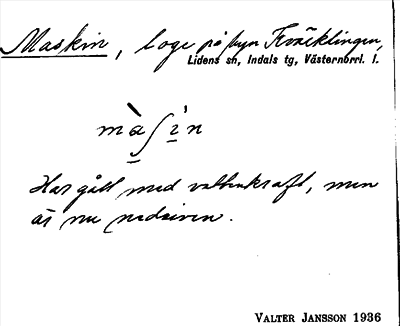 Maskin, loge på byn Kväcklingen,
Lidens sn, Indals tg, Västernorrl. l.
màʃin
Har gått med vattenkraft, men
är nu nedriven.
VALTER JANSSON 1936